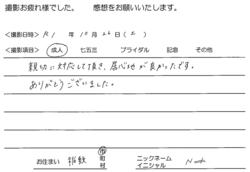 撮影お疲れ様でした。 感想をお願いいたします。
<撮影日時> R1年10月26日(土)
<撮影項目> 成人 七五三 ブライダル 記念 その他
親切に対応して頂き、居心地が良かったです。
ありがとうございました。
お住まい 市 町 村 ニックネーム イニシャル